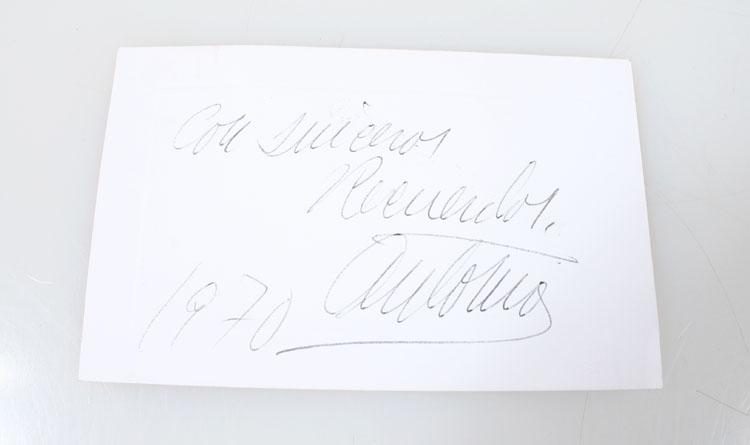 Con sinceros
Recuerdos.
Antonio
1970